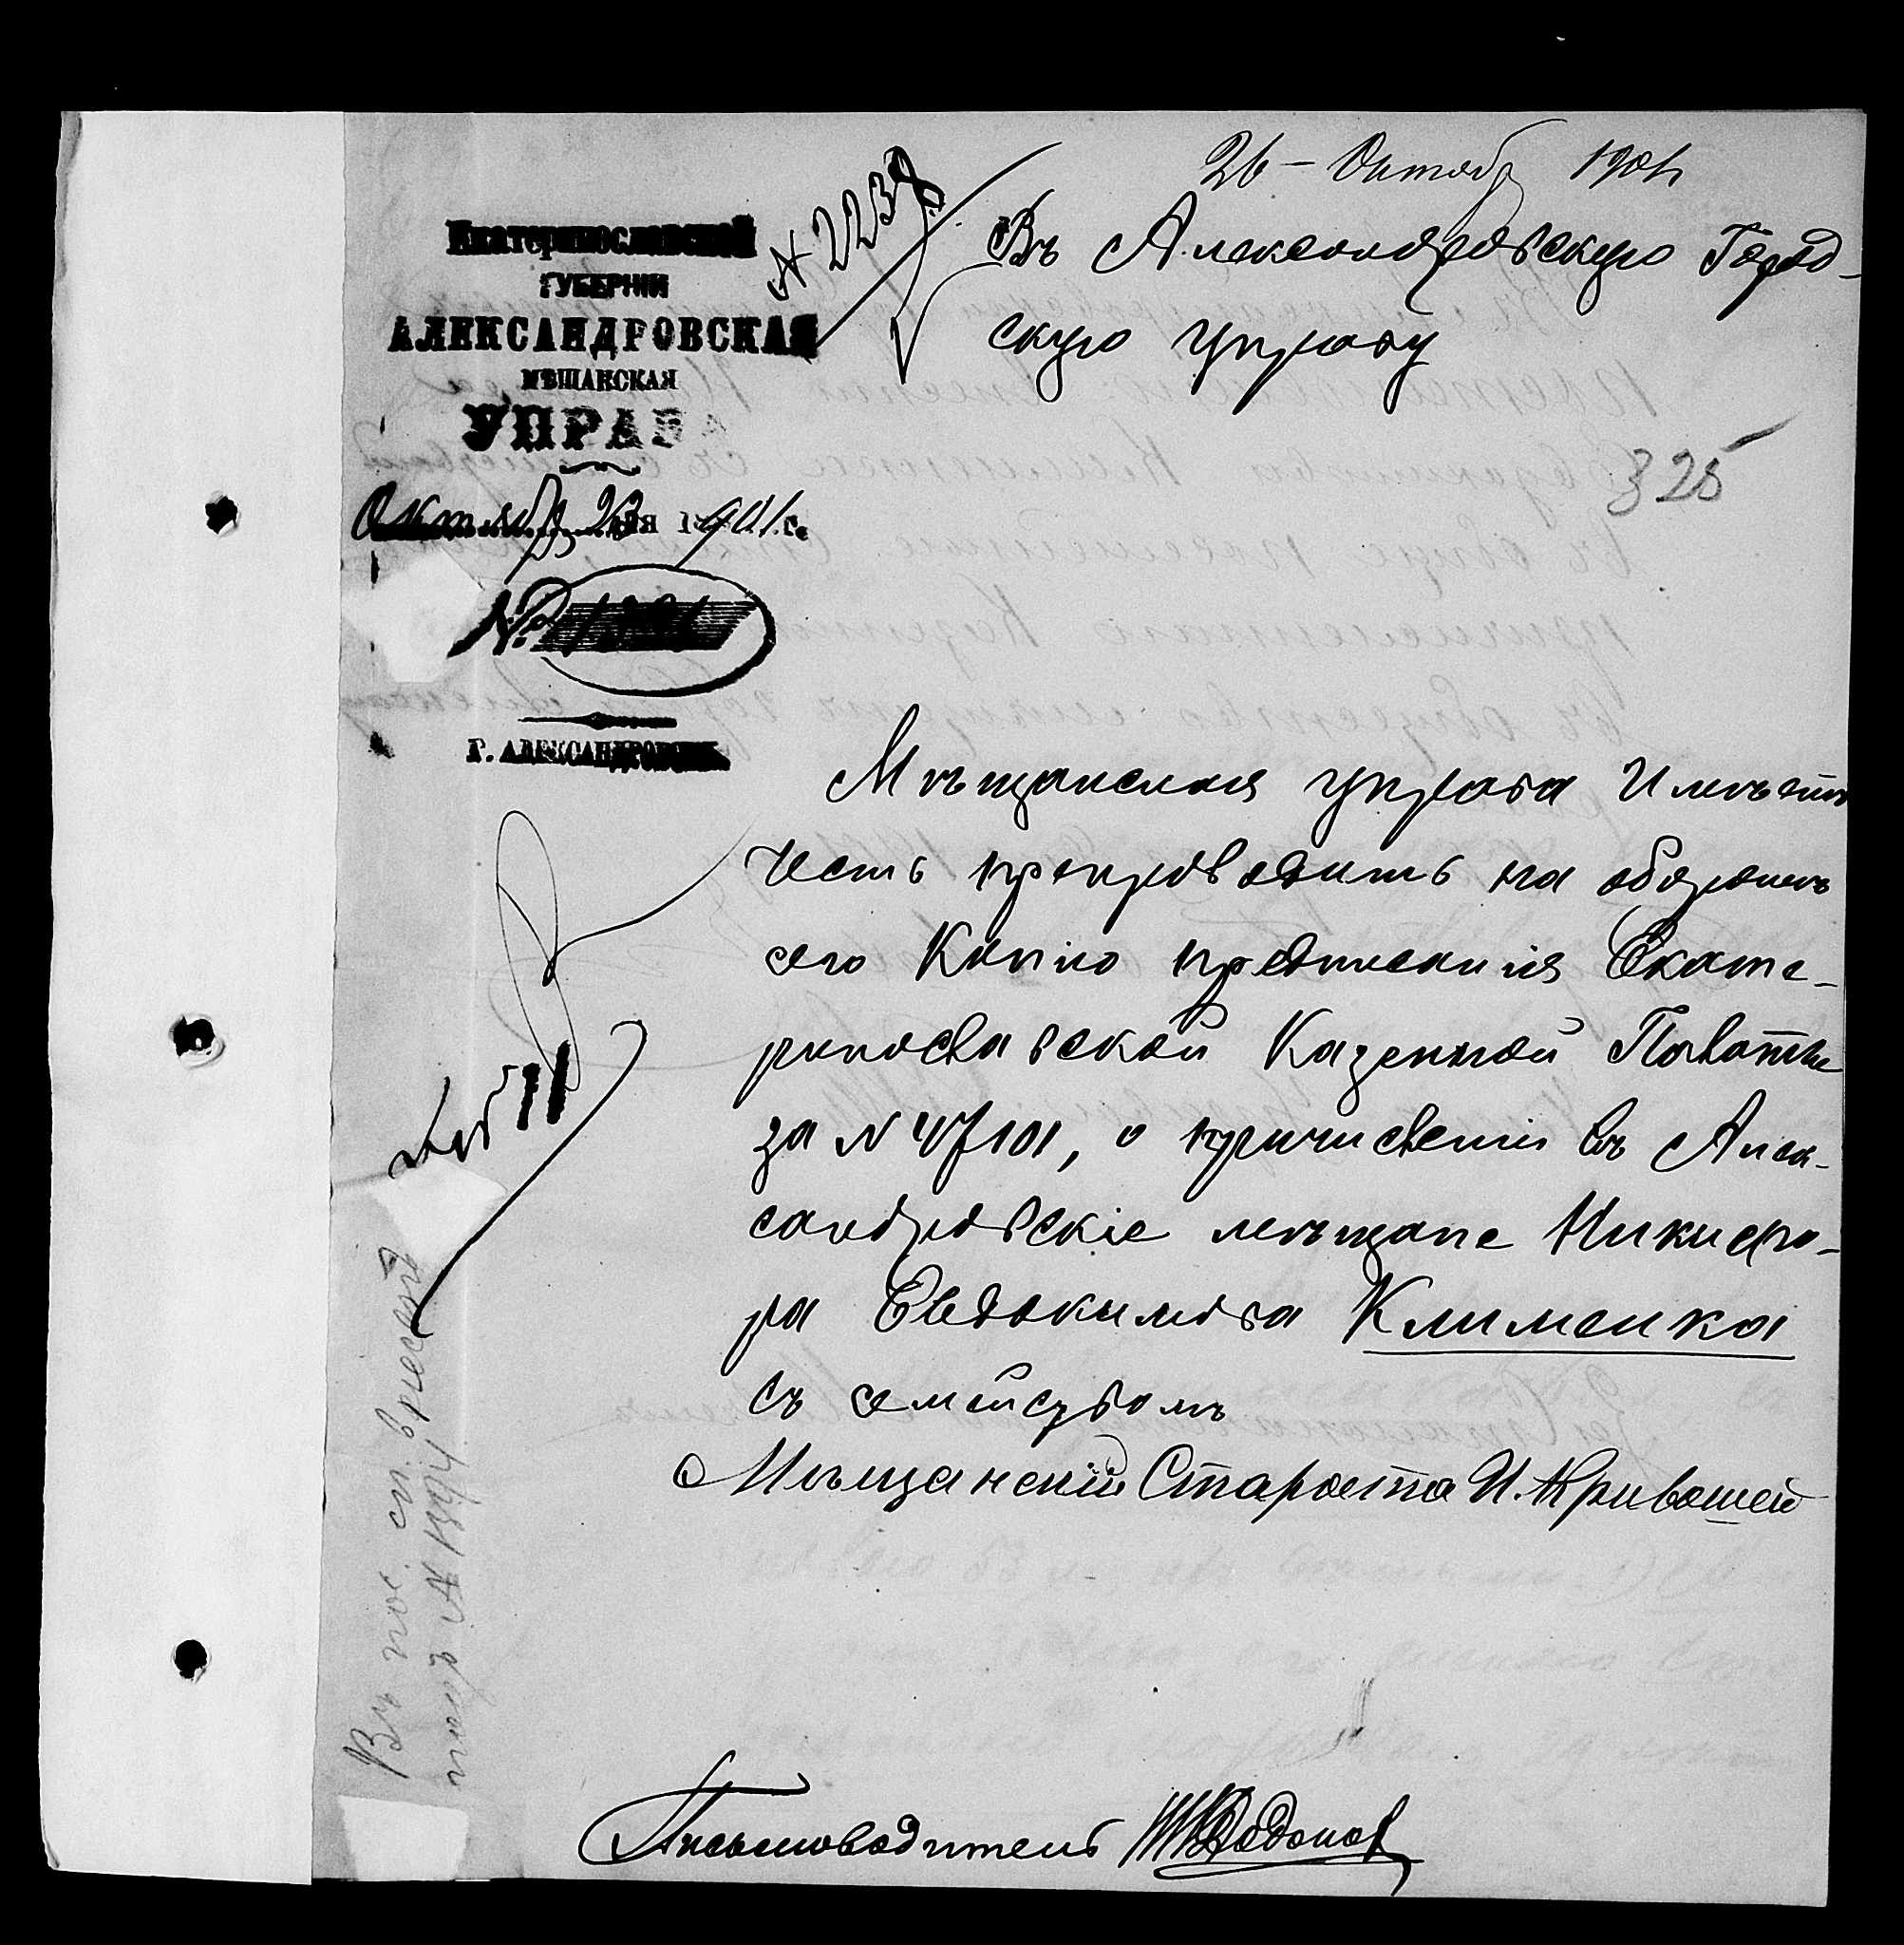 26 – Октября 1901
№ 2238
Екатеринославской
ГУБЕРНІИ
АЛЕКСАНДРОВСКАЯ
МѢЩАНСКАЯ
УПРАВА
Октября 23 дня 1901 г.
№
Г. АЛЕКСАНДРОВСКЪ
Въ Александровскую Город-
скую управу
325
Мѣщанская управа Имѣетъ
честь препроводить на оборотѣ
сего Копію предписанія Екате-
ринославской Казенной Палаты
за № 47101, о причисленіи въ Алек-
сандровскіе мѣщане Никифо-
ра Евдокимова Клименка
съ семействомъ
Мѣщанскій Староста И. Кривошей
Письмоводитель
Въ пос. сп. внесенъ
подъ №